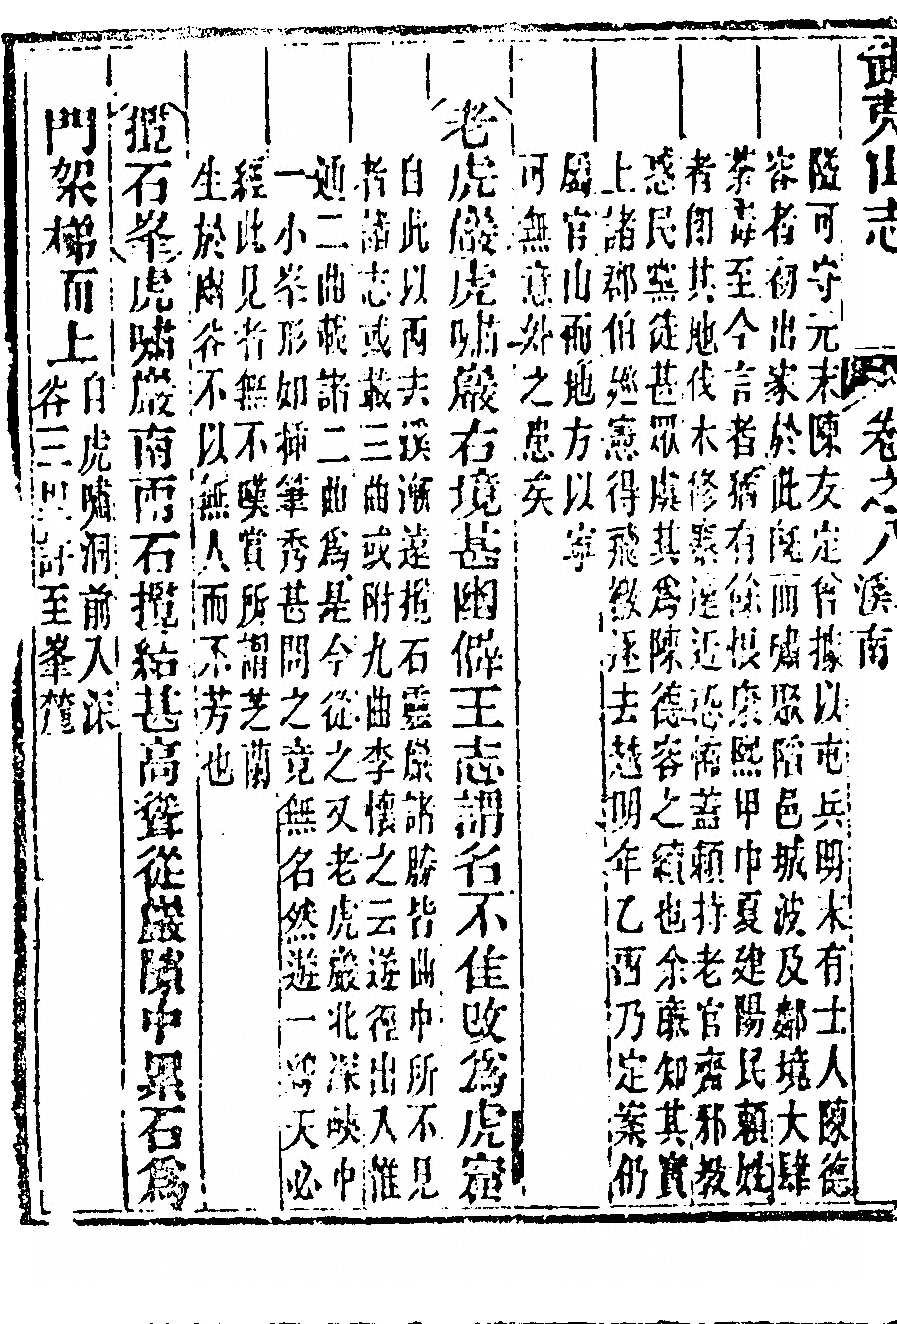 武夷山志　卷之八　溪南
隘可守元末陳友定曾據以屯兵明末有士人陳德
容者初出家於此旣而嘯聚陷邑城波及鄰境大肆
荼毒至今言者猶有餘恨康熙甲申夏建陽民賴姓
者開其地伐木修寨遠近恐怖蓋賴持老官齋邪教
惑民黨徒甚眾處其爲陳德容之續也余廉知其實
上諸郡伯巡憲得飛檄逐去越明年乙酉乃定案仍
屬官山而地方以寧
可無意外之患矣
老虎巖虎嘯巖右境甚幽僻王志謂名不佳改爲虎窟
自此以西去溪漸遠攬石靈巖諸勝皆曲中所不見
者諸志或載三曲或附九曲李懷之云遊徑出入惟
通二曲載諸二曲爲是今從之又老虎巖北深峽中
一小峯形如插筆秀甚問之竟無名然遊一線天必
經此見者無不嘆賞所謂芝蘭
生於幽谷不以無人而不芳也
攬石峯虎嘯巖南兩石攬結甚高聳從巖隙中累石爲
門架梯而上自虎嘯洞前入深
谷三里許至峯麓